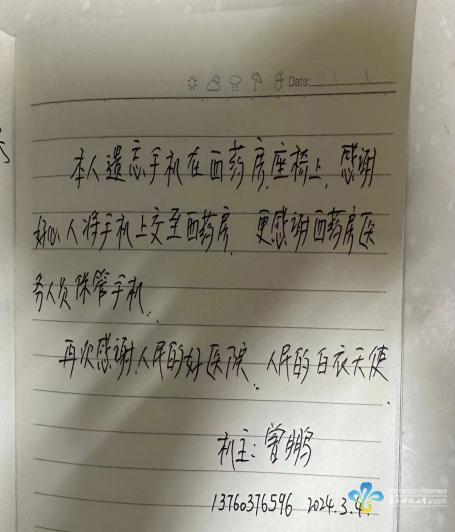 Date:
本人遗忘手机在西药房座椅上,感谢
好心人将手机上交至西药房.更感谢西药房医
务人员保管手机.
再次感谢人民的好医院.人民的白衣天使.
机主:曾鹏
13760376596 2024.3.4.